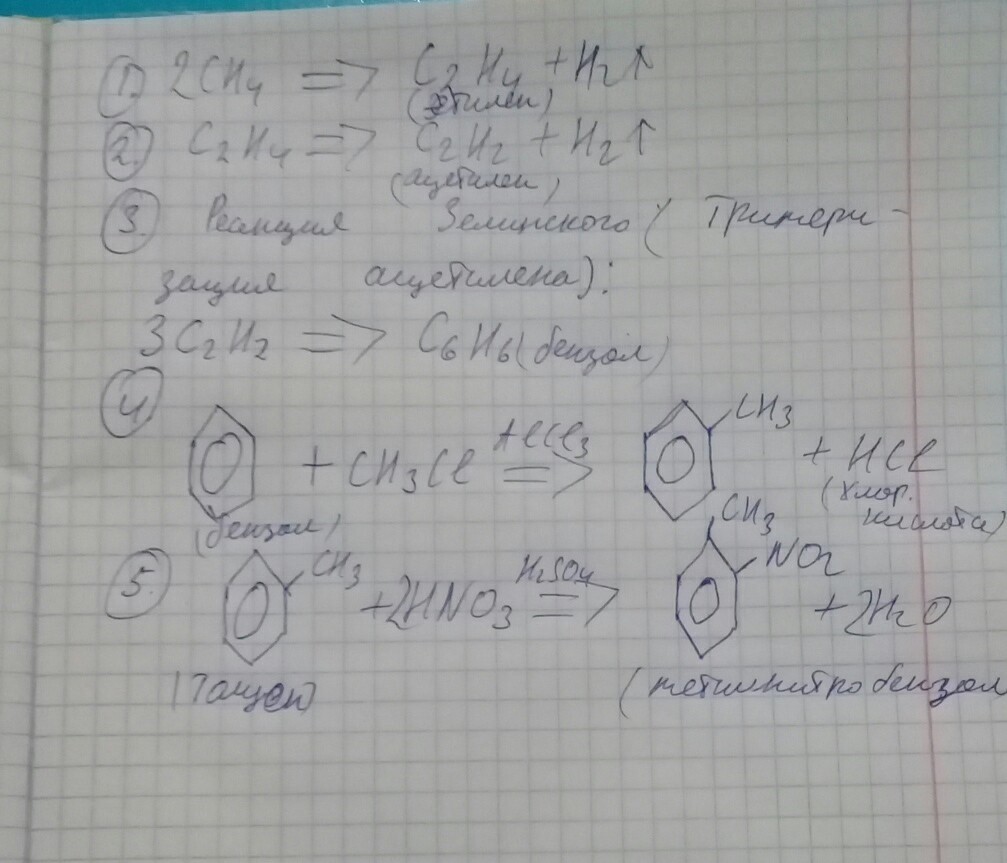 1. 2CH4 => C2H4 + H2↑
(этилен)
2. C2H4 => C2H2 + H2↑
(ацетилен)
3. Реакция Зелинского (Тримери-
зация ацетилена):
3C2H2 => C6H6 (бензол)
4.
+ CH3Cl AlCl3 => CH3 + HCl
(бензол) (хлор. кислота)
5. CH3 + 2HNO3 H2SO4 => CH3 NO2 + 2H2O
(метилнитробензол